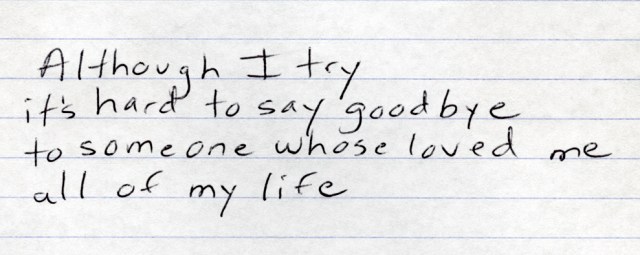 Although I try
it's hard to say goodbye
to someone whose loved me
all of my life